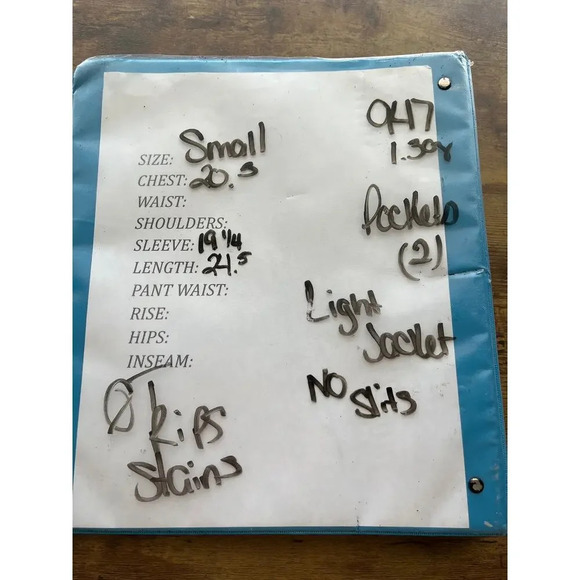 SIZE: Small
CHEST: 20.5
WAIST:
SHOULDERS:
SLEEVE: 19 1/4
LENGTH: 21.5
PANT WAIST:
RISE:
HIPS:
INSEAM:
Ø Rips
Stains
OH7
Pockets
(2)
Light
Jacket
No Slits